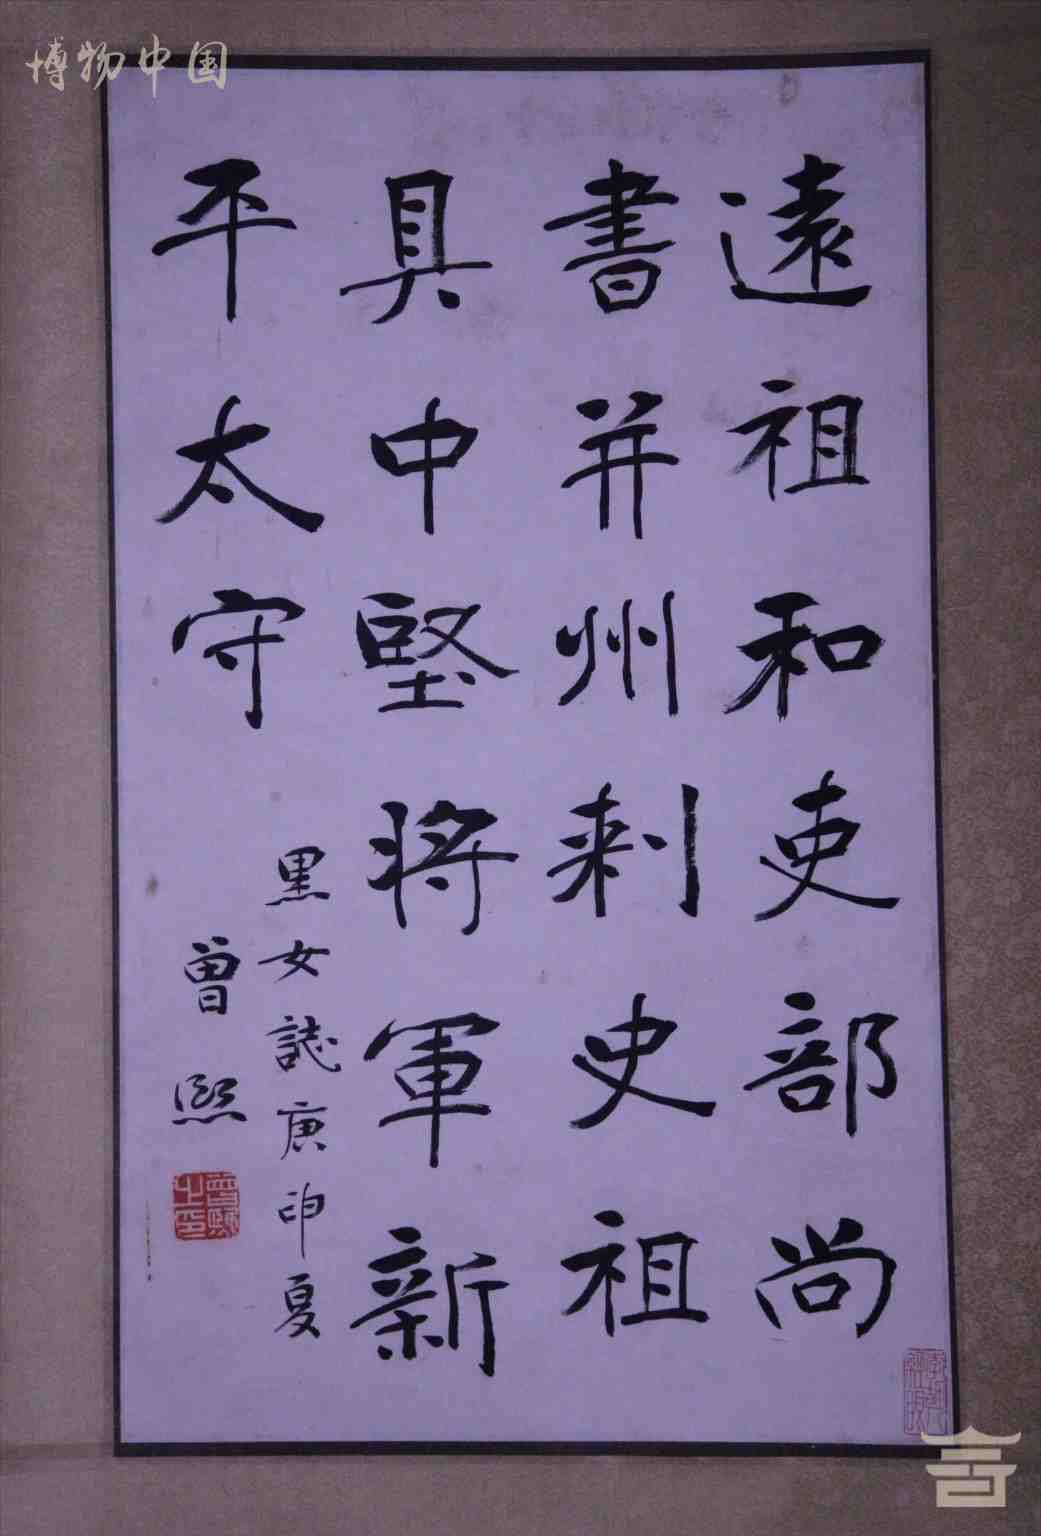 博物中国
遠祖和吏部尚
書并州刺史祖
具中堅將軍新
平太守
黑女誌庚申夏
曾熙